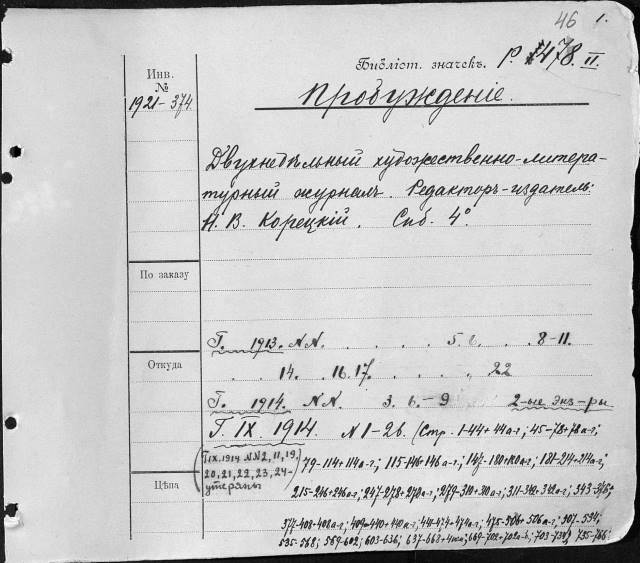 46 1.
Библіот. значекъ. P. 1478 II.
Инв.
№
1921-374
Пробужденіе.
Двухнедѣльный художественно-литера-
турный журналъ. Редакторъ-издатель:
Н. В. Корецкій. Спб. 4°.
По заказу
Г. 1913. NN. . . . . 5. 6. . . 8-11.
. . 14. 16.17. . . . . 22
Откуда
Г. 1914. NN. 3. 6.-9 2-ые экз-ры
Г. IX. 1914. N 1-26. (Стр. 1-44+44а-г; 45-78+78а-г;
(Г.IX.1914 NN2,11,19,
20,21,22,23,24-
утеряны)
79-114+114а-г; 115-146+146а-г; 147-180+180а-г; 181-214+214а-г;
Цѣна
215-246+246а-г; 247-278+278а-г; 279-310+310а-г; 311-342+342а-г; 343-376;
377-408+408а-г; 409-440+440а-г; 441-474+474а-г; 475-506+506а-г; 507-534;
535-568; 569-602; 603-636; 637-668+ 669-702+702а-г; 703-734; 735-766;